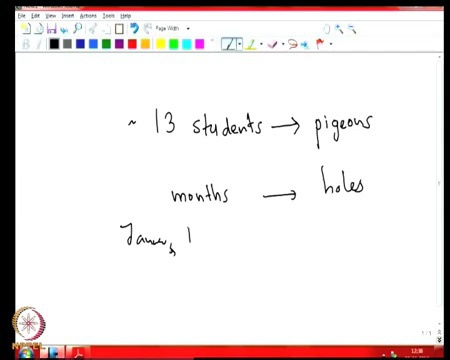 File Edit View Insert Actions Tools Help
Page Width
~ 13 students → pigeons
months → holes
1/1
NPTEL
12:38